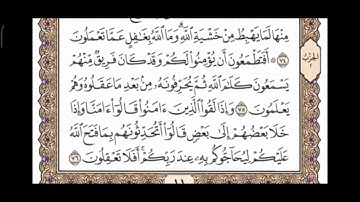 مِنْهَا لَمَا يَهْبِطُ مِنْ خَشْيَةِ ٱللَّهِ ۗ وَمَا ٱللَّهُ بِغَٰفِلٍ عَمَّا تَعْمَلُونَ
٧٤ ۞ أَفَتَطْمَعُونَ أَن يُؤْمِنُوا۟ لَكُمْ وَقَدْ كَانَ فَرِيقٌ مِّنْهُمْ
يَسْمَعُونَ كَلَٰمَ ٱللَّهِ ثُمَّ يُحَرِّفُونَهُۥ مِنۢ بَعْدِ مَا عَقَلُوهُ وَهُمْ
يَعْلَمُونَ ٧٥ وَإِذَا لَقُوا۟ ٱلَّذِينَ ءَامَنُوا۟ قَالُوٓا۟ ءَامَنَّا وَإِذَا
خَلَا بَعْضُهُمْ إِلَىٰ بَعْضٍ قَالُوٓا۟ أَتُحَدِّثُونَهُم بِمَا فَتَحَ ٱللَّهُ
عَلَيْكُمْ لِيُحَآجُّوكُم بِهِۦ عِندَ رَبِّكُمْ ۚ أَفَلَا تَعْقِلُونَ ٧٦
الحزب
٢
١١